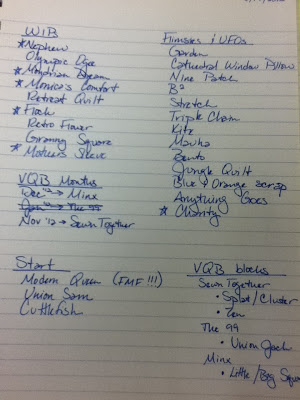 WIB
*Nephew
Olympic Ogee
*
*Monica's Comfort
Retreat Quilt
*Flock
Retro Flower
Granny Square
*Mother's Sleeve
VQB Months
Dec '12 → Minx
Jan '12 → The 99
Nov '12 → Sewn Together
Start
Modern Queen (FMF!!!)
Union Sam
Cuttlefish
Flimsies & UFOs
Garden
Cathedral Window Pillow
Nine Patch
B²
Stretch
Triple Chain
Kite
Bento
Jungle Quilt
Blue & Orange scrap
Anything Goes
*Charity
VQB blocks
Sewn Together
• Splat/Cluster
• Zen
The 99
• Union Jack
Minx
• Little/Big Square